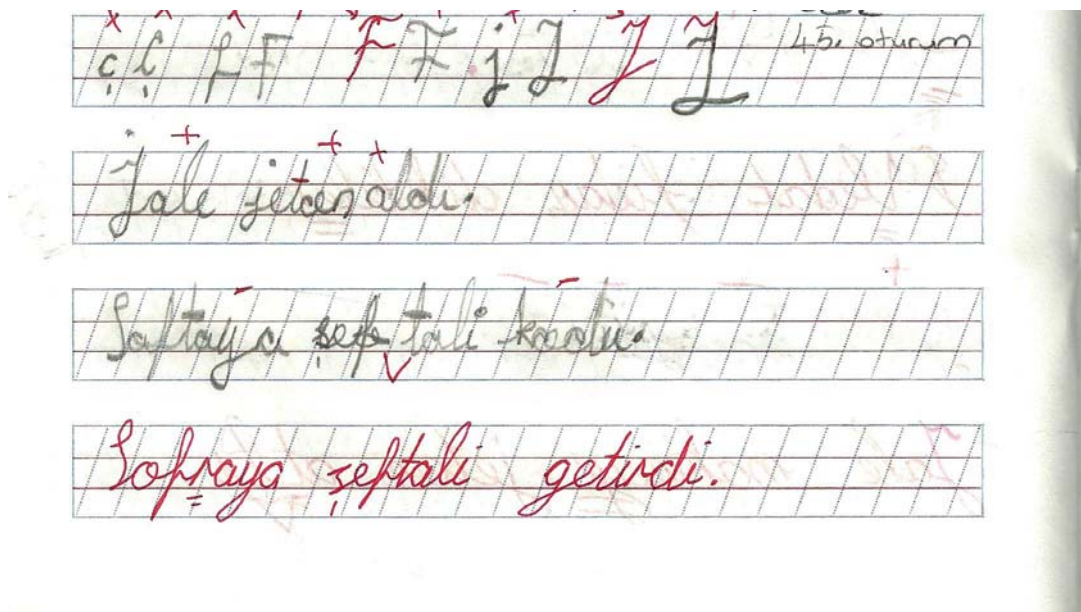 F F F j J J J 45. oturum
Jale jeton aldı.
Softaya şeftali
Sofraya şeftali getirdi.